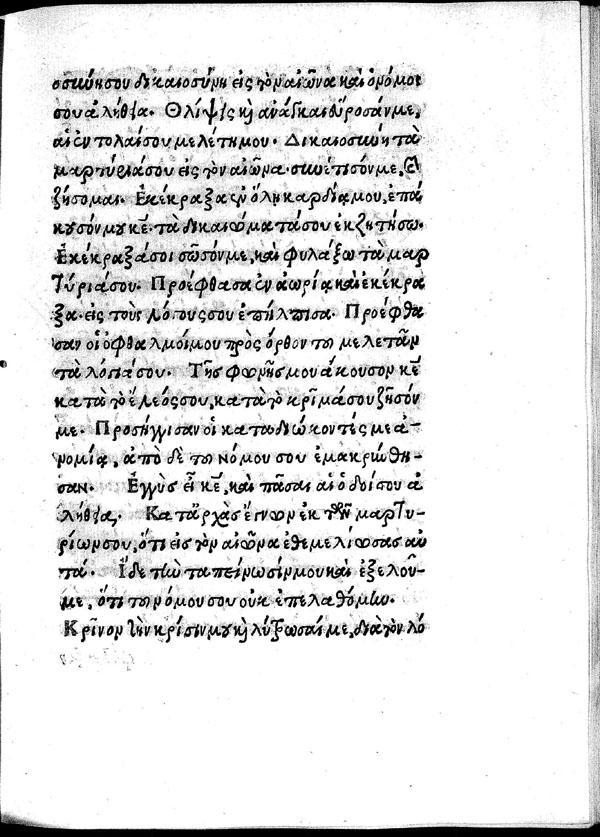 οσύνη σου δικαιοσύνη εἰς τὸν αἰῶνα καὶ ὁ νόμος
σου ἀλήθεια. Θλίψις κὶ ἀνάγκαι εὕροσάν με,
αἱ ἐντολαί σου μελέτη μου. Δικαιοσύνη τὰ
μαρτύριά σου εἰς τὸν αἰῶνα· συνέτισόν με, καὶ
ζήσομαι. Ἐκέκραξα ἐν ὅλη καρδία μου, ἐπά
κουσόν μου κε̅· τὰ δικαιώματά σου ἐκζητήσω.
Ἐκέκραξά σοι σῶσόν με, καὶ φυλάξω τὰ μαρ
τύριά σου. Προέφθασα ἐν ἀωρία καὶ ἐκέκρα
ξα· εἰς τοὺς λόγους σου ἐπήλπισα. Προέφθα
σαν οἱ ὀφθαλμοί μου πρὸς ὄρθον τοῦ μελετᾶν
τὰ λόγιά σου. Τῆς φωνῆς μου ἄκουσον κε̅
κατὰ τὸ ἔλεός σου, κατὰ τὸ κρῖμά σου ζῆσόν
με. Προσήγγισαν οἱ καταδιώκοντές με ἀ-
νομία, ἀπὸ δὲ τοῦ νόμου σου ἐμακρύνθη-
σαν. Ἐγγὺς εἶ κε̅, καὶ πᾶσαι αἱ ὁδοί σου ἀ
λήθεια. Κατ' ἀρχὰς ἔγνων ἐκ τῶν μαρτυ-
ρίων σου, ὅτι εἰς τὸν αἰῶνα ἐθεμελίωσας αὐ
τά. Ἴδε τὴν ταπείνωσίν μου καὶ ἐξελοῦ-
με, ὅτι τὸν νόμον σου οὐκ ἐπελαθόμην.
Κρῖνον τὴν κρίσιν μου κὶ λύτρωσαί με, διὰ τὸν λό